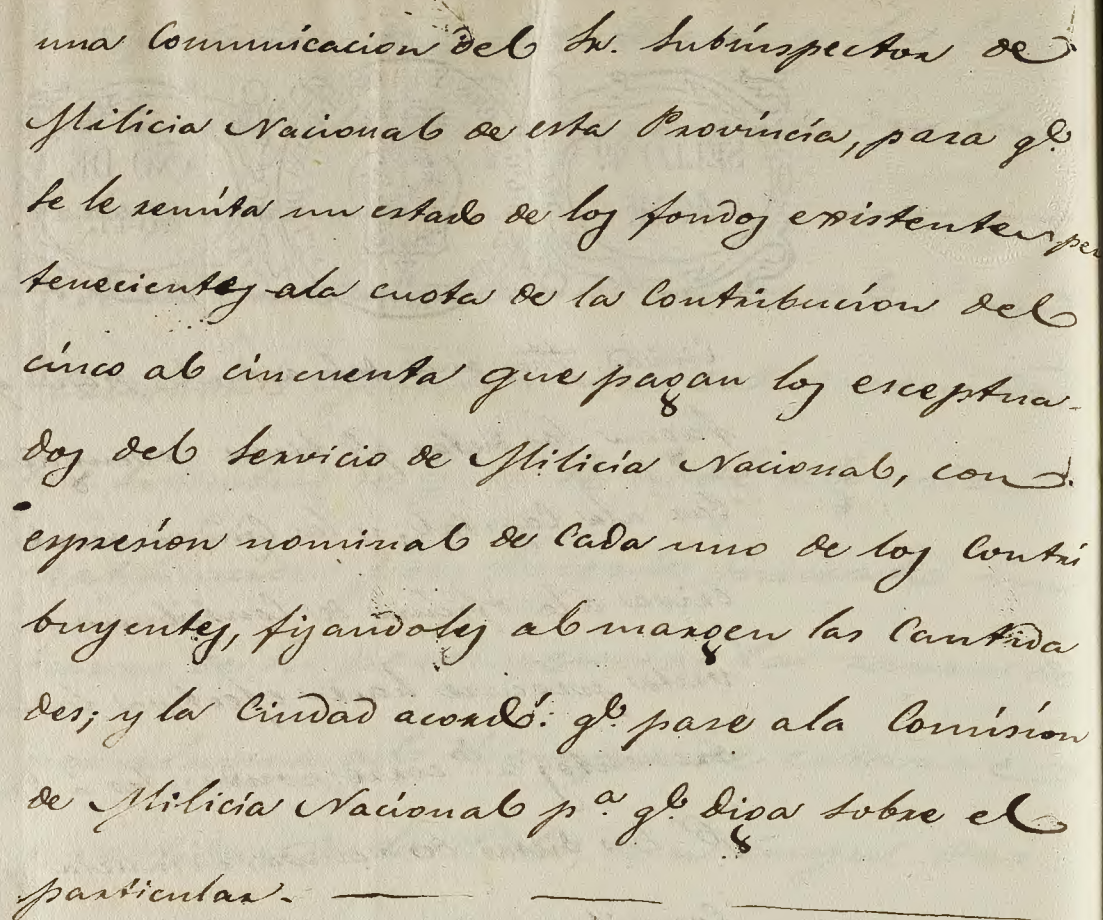 una Comunicacion del Sr. Subinspector de
Milicia Nacional de esta Provincia, para qe.
se le remita un estado de los fondos existentes per
tenecientes ala cuota de la Contribucion del
cinco al cincuenta que pagan los esceptua-
dos del Servicio de Milicia Nacional, con
espresion nominal de Cada uno de los Contri
buyentes, fijandoles al margen las Cantida
des; y la Ciudad acordó: qe. pase ala Comision
de Milicia Nacional pa. qe. diga sobre el
particular.